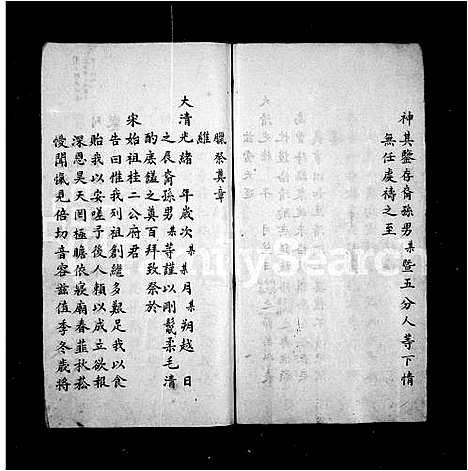 神其鑒存裔孫男某暨五分人等下情
無任虔禱之至
臘祭奠章
維
大清光緒　年歲次某某月某朔越　日
之辰裔孫男某等謹以剛鬣柔毛清
酌庶饈之奠百拜致祭於
宋始祖桂二公府君
告曰惟我列祖創繼多艱足我以食
貽我以安嗟予後人賴以成立欲報
深恩昊天罔極瞻依寢廟春韮秋菘
僾聞愾見倍切音容茲值季冬歲將
FamilySearch